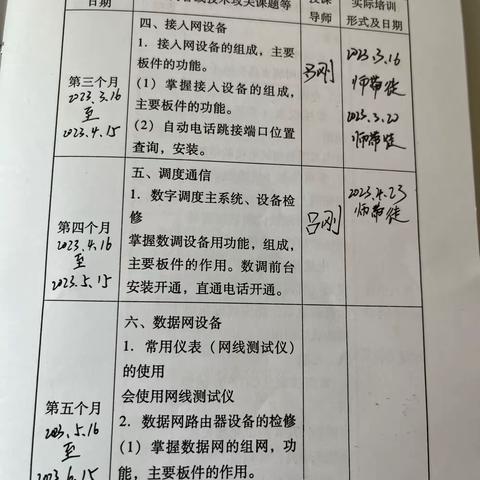 日期
技术攻关课题等
授课
导师
实际培训
形式及日期
第三个月
2023.3.16
至
2023.4.15
四、接入网设备
1．接入网设备的组成，主要
板件的功能。
（1）掌握接入设备的组成，
主要板件的功能。
（2）自动电话跳接端口位置
查询，安装。
吕刚
2023.3.16
师带徒
2023.3.20
师带徒
第四个月
2023.4.16
至
2023.5.15
五、调度通信
1．数字调度主系统、设备检
修
掌握数调设备用功能，组成，
主要板件的作用。数调前台
安装开通，直通电话开通。
吕刚
2023.4.23
师带徒
第五个月
2023.5.16
至
2023.6.15
六、数据网设备
1．常用仪表（网线测试仪）
的使用
会使用网线测试仪
2．数据网路由器设备的检修
（1）掌握数据网的组网，功
能，主要板件的作用。